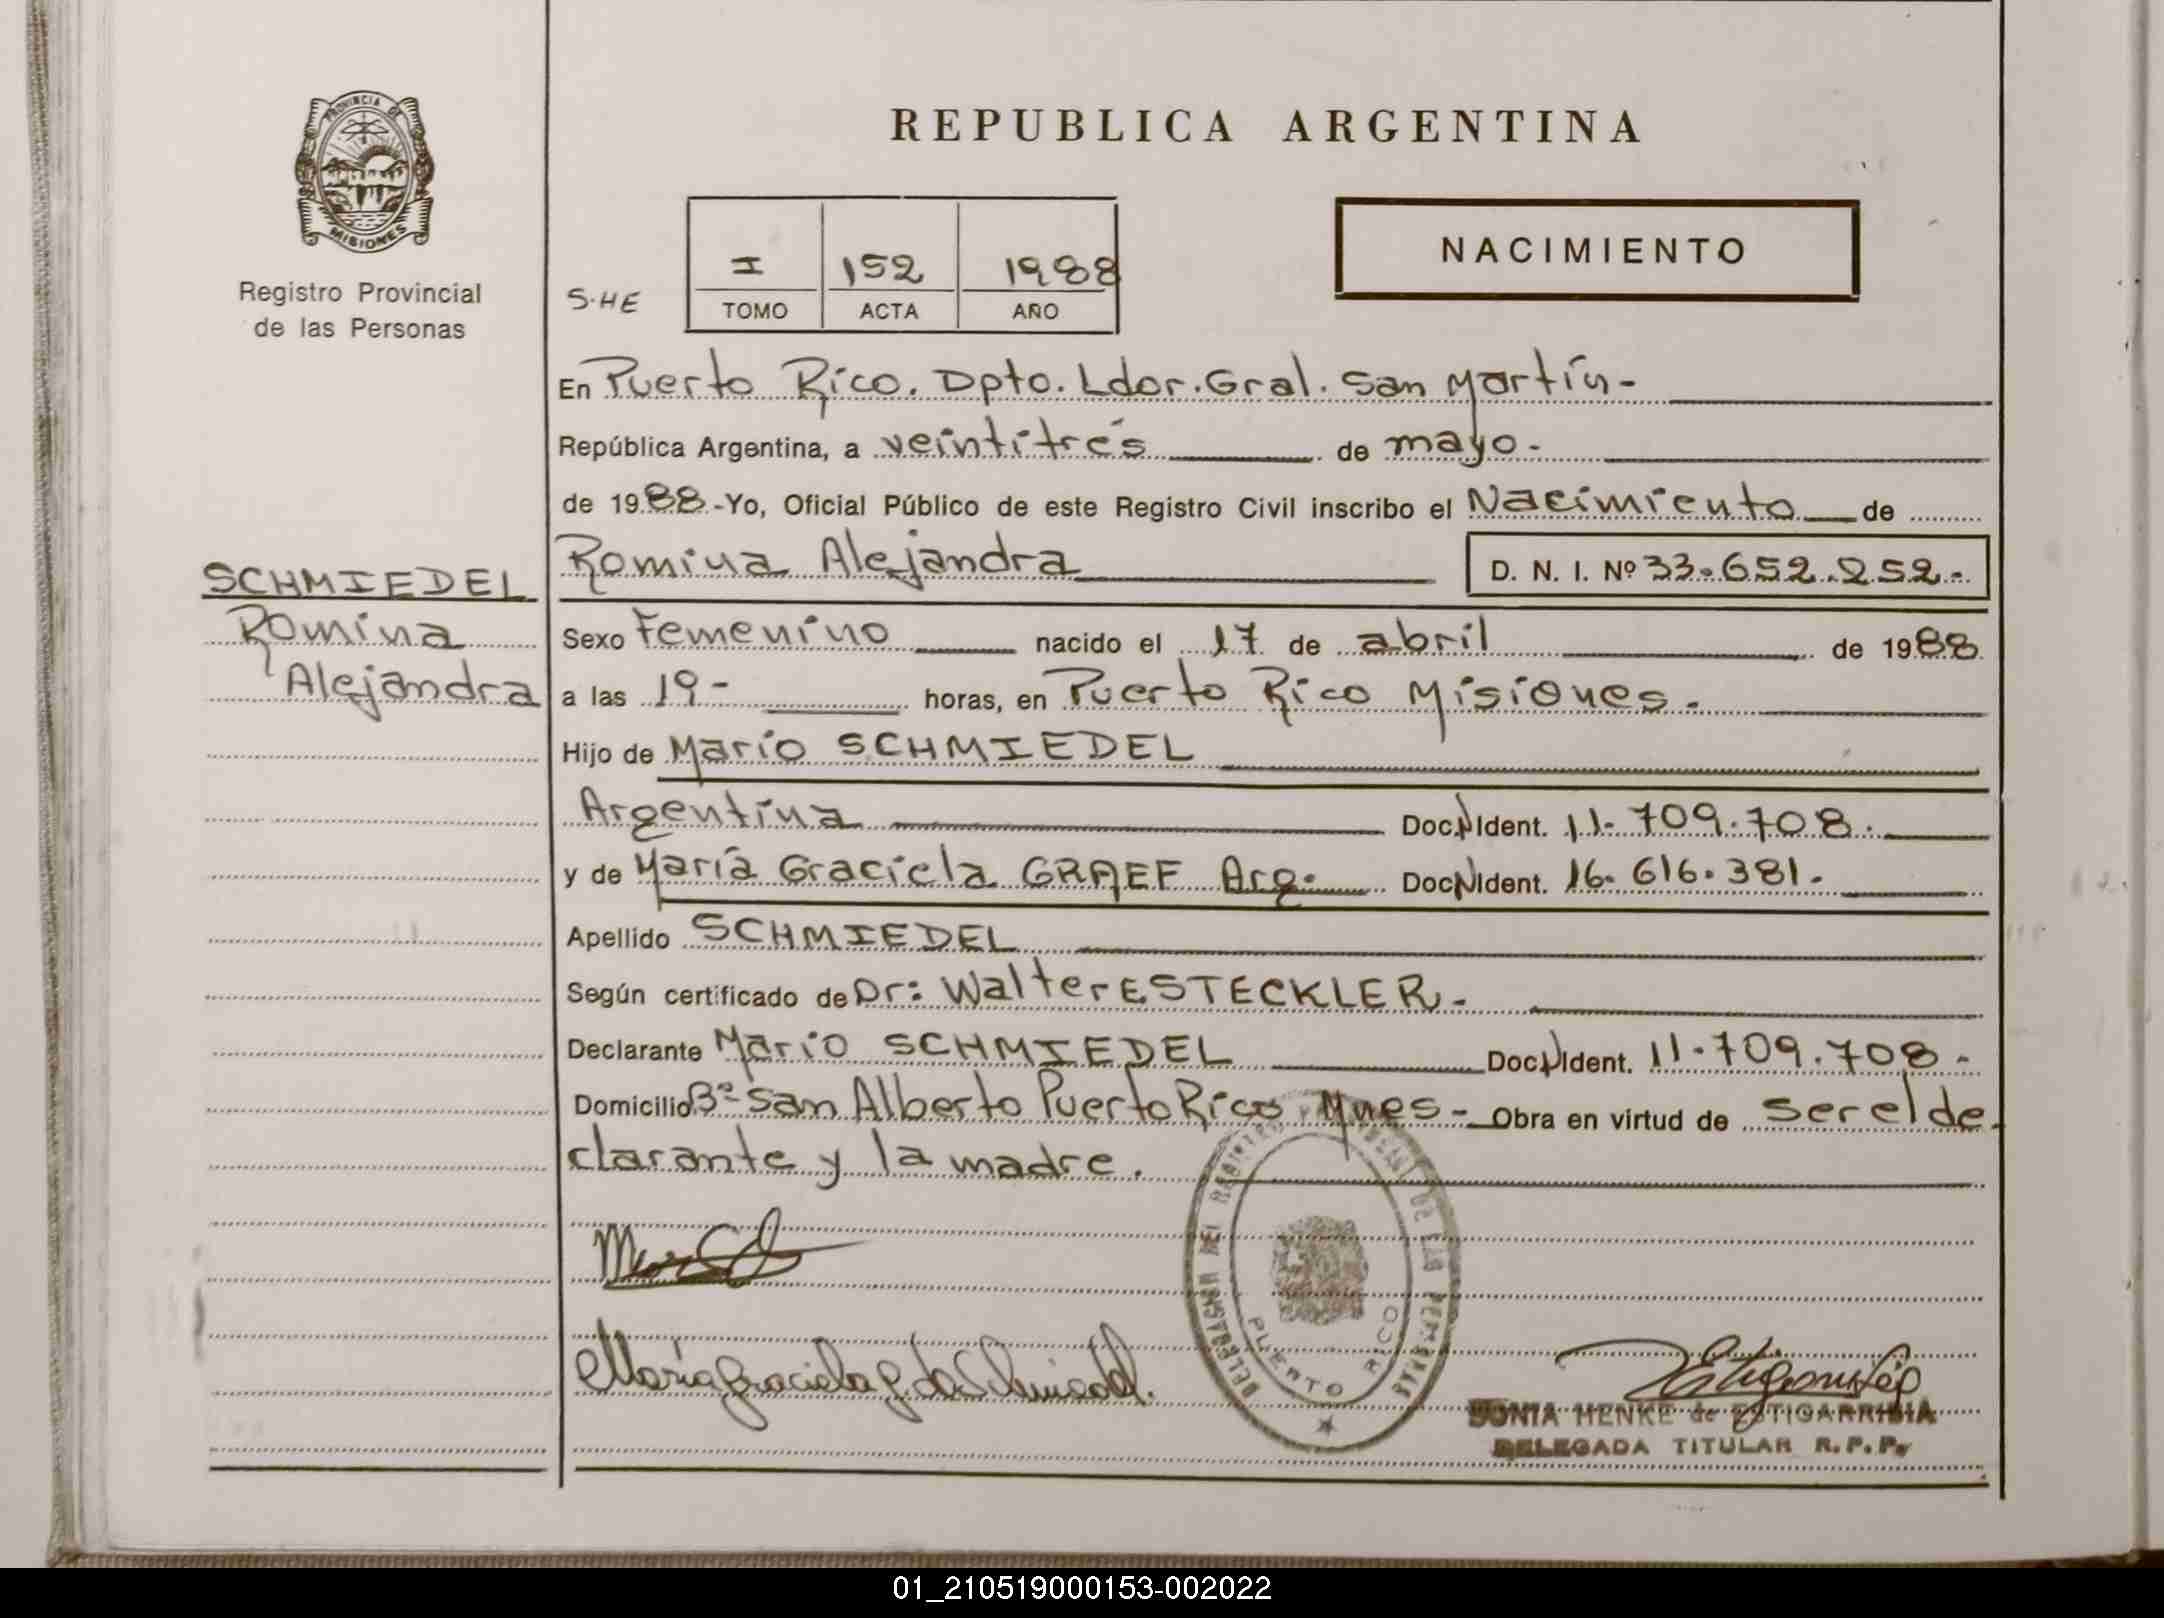 PROVINCIA DE
MISIONES
Registro Provincial
de las Personas
SCHMIEDEL
Romina
Alejandra
REPUBLICA ARGENTINA
S.HE
I 152 1988
TOMO ACTA AÑO
NACIMIENTO
En Puerto Rico. Dpto. Ldor. Gral. San Martín-
República Argentina, a veintitrés de mayo.
de 1988-Yo, Oficial Público de este Registro Civil inscribo el Nacimiento de
Romina Alejandra D. N. I. Nº 33.652.252.-
Sexo Femenino nacido el 17 de abril de 1988
a las 19- horas, en Puerto Rico Misiones.
Hijo de Mario SCHMIEDEL
Argentina Doc.NIdent. 11.709.708.
y de María Graciela GRAEF Arg. Doc.NIdent. 16.616.381.
Apellido SCHMIEDEL
Según certificado de Dr: Walter ESTECKLER.-
Declarante Mario SCHMIEDEL Doc.NIdent. 11.709.708.-
Domicilio Bº San Alberto Puerto Rico Mnes- Obra en virtud de ser el de-
clarante y la madre.
María Graciela G. de Schmiedel.
DELEGACION DEL REGISTRO PROVINCIAL DE LAS PERSONAS
PUERTO RICO
SONIA HENKE de ESTIGARRIBIA
DELEGADA TITULAR R.P.P.
01_210519000153-002022